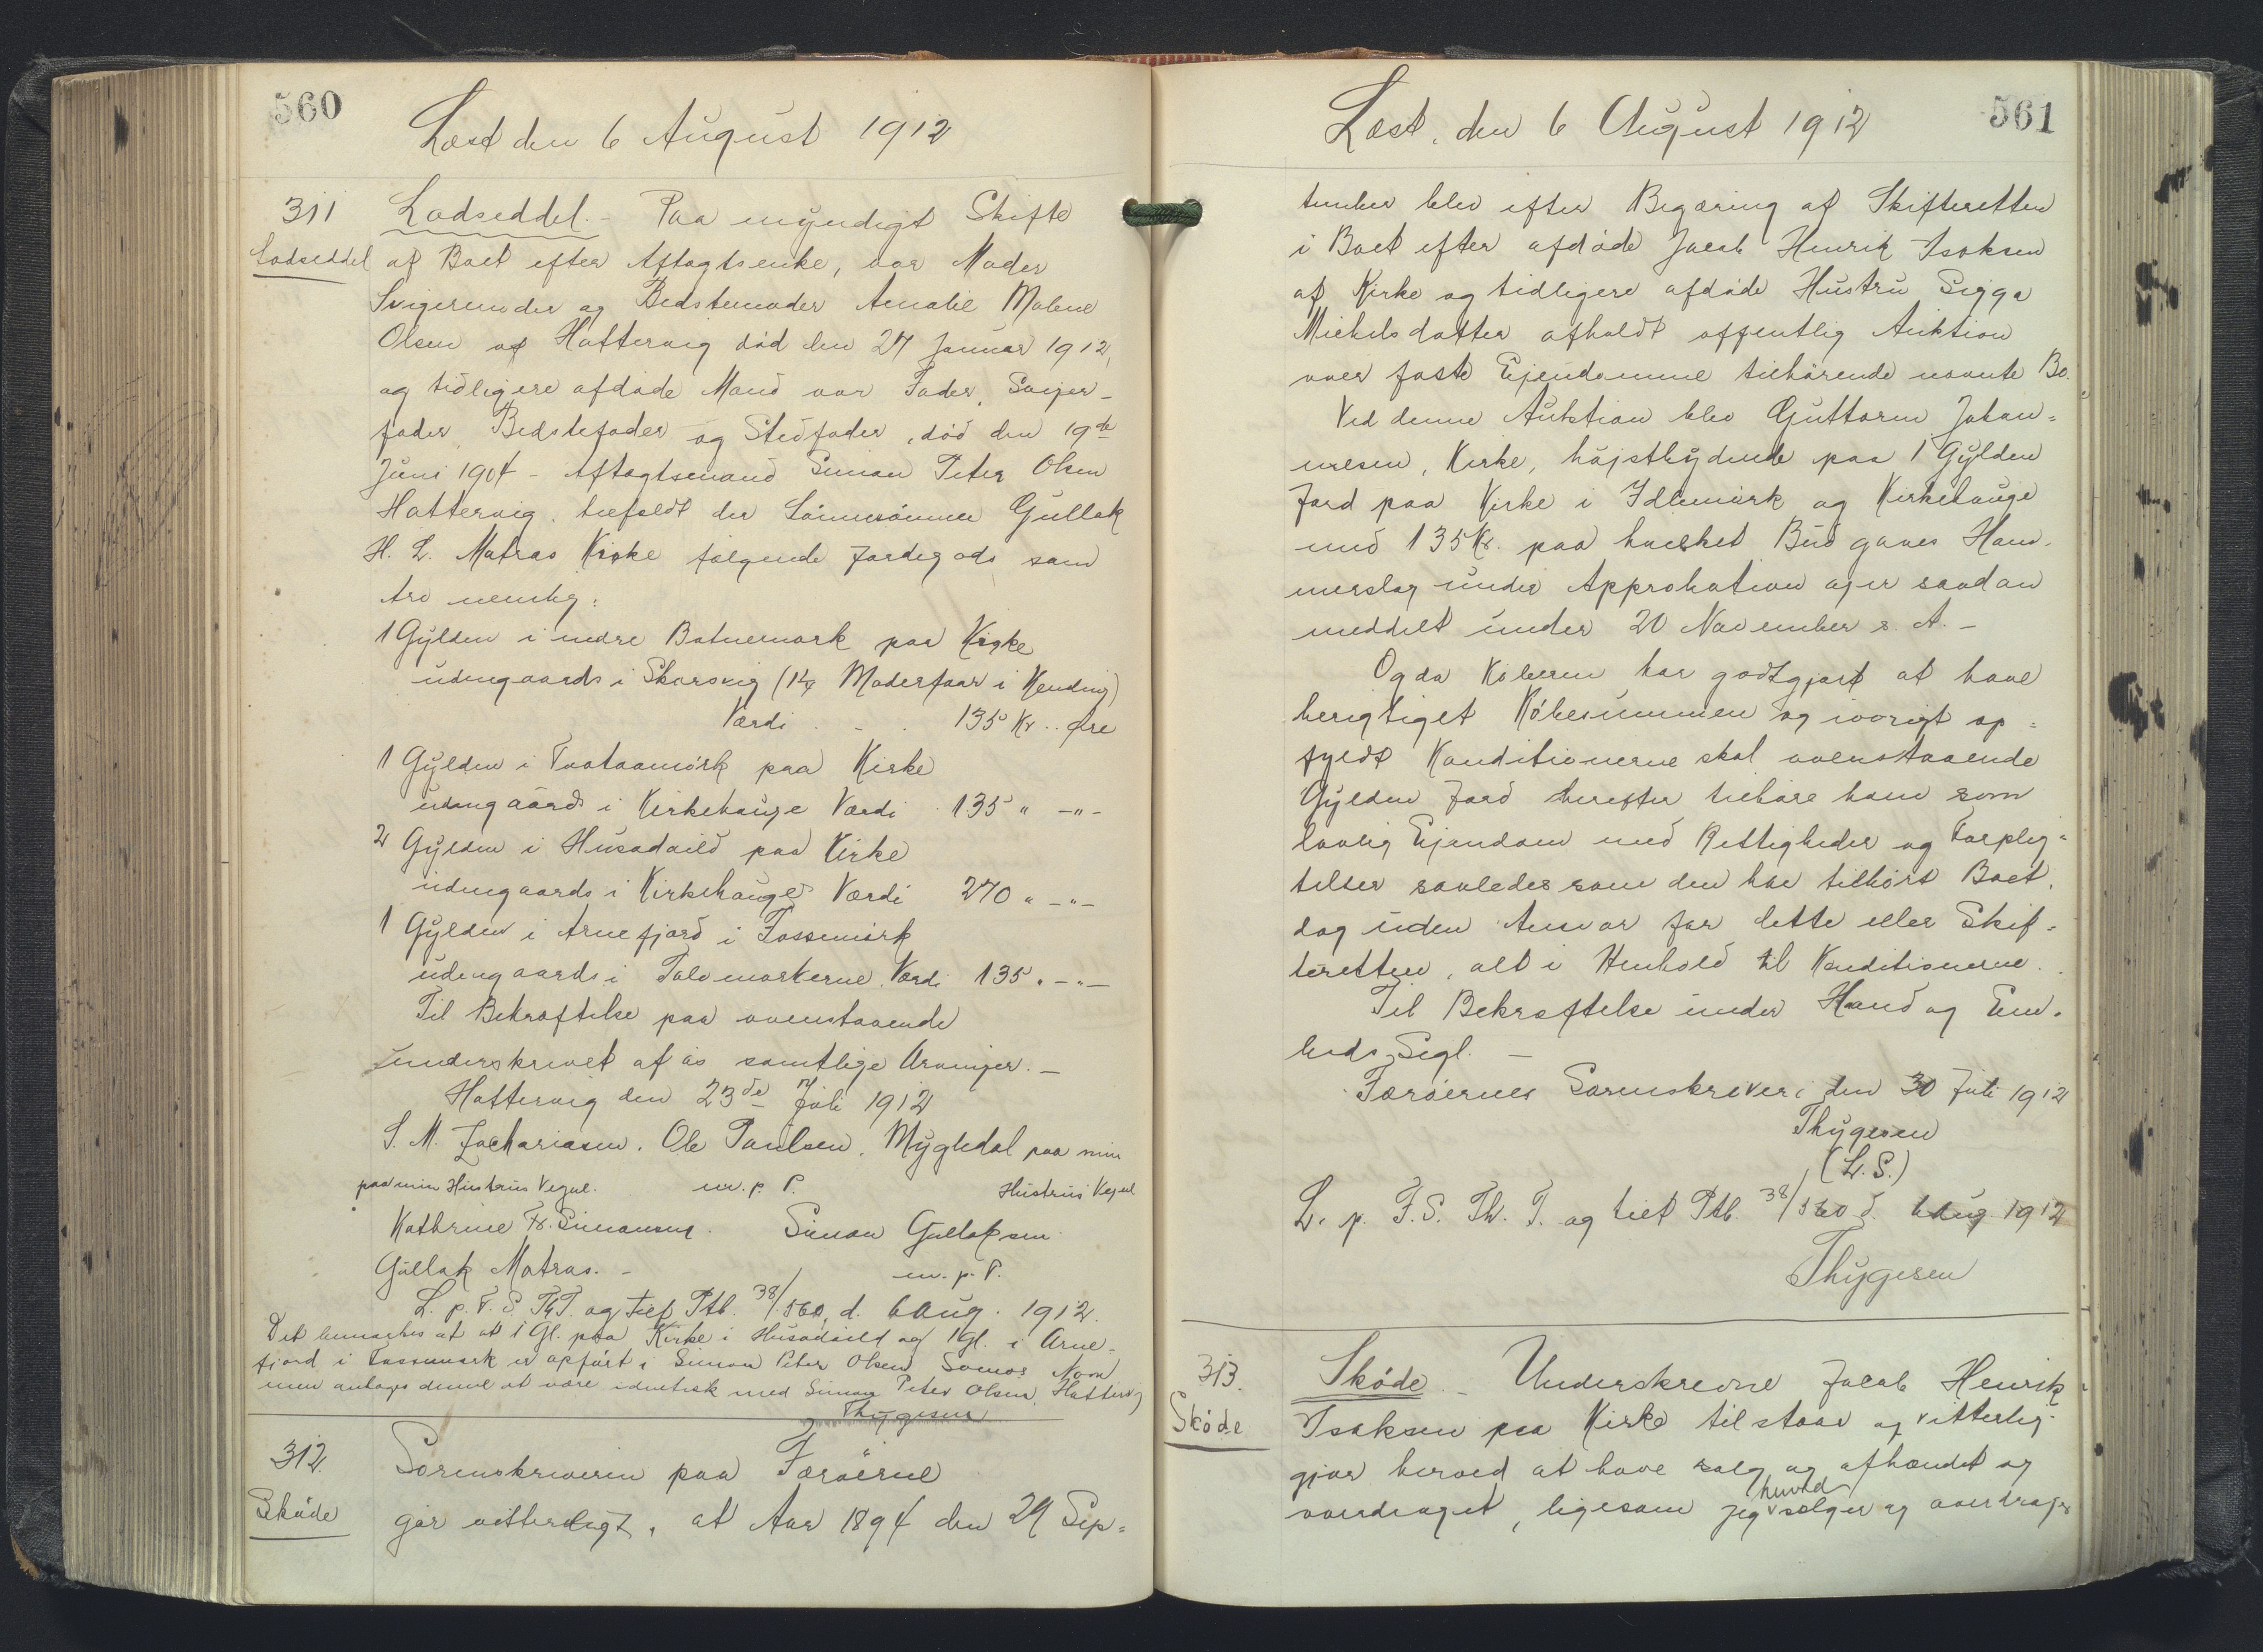 560
Læst den 6 August 1912
311
Lodseddel
Lodseddel. - Paa myndigt Skifte
af Boet efter Aftagtsenke, vor Moder
Svigermoder og Bedstemoder Amalie Malene
Olsen af Hattervig død den 27 Januar 1912,
og tidligere afdøde Mand vor Fader, Sviger-
fader, Bedstefader og Stedfader, død den 19de
Juni 1904 - Aftagtsmand Simon Peter Olsen
Hattervig, tilfaldt der Sønnesønnen Gullak
H. L. Matras Kirke følgende Jordegods som
Arv nemlig:
1 Gylden i nedre Batnemark paa Kirke
udengaards i Skarsvig (1¼ Moderfaar i Kending)
Værdi . . . 135 Kr .. Øre
1 Gylden i Tvotaamørk paa Kirke
udengaards i Kirkehauge Værdi . 135 " -"-
2 Gylden i Húsadaild paa Kirke
udengaards i Kirkehauge Værdi 270 " -"-
1 Gylden i Arnefjord i Fossmørk
udengaards i Talvmarkerne. Værdi 135 " -"-
Til Bekræftelse paa ovenstaaende
underskrevet af os samtlige Arvinger. -
Hattervig den 23de Juli 1912
S. M. Zachariasen. Ole Poulsen, Mygledal paa min
paa min Hustrus Vegne. m. p. P. Hustrus Vegne
Kathrine Fr. Simonsen. Simon Gullaksen
Gullak Matras. - m. p. P.
L. p. F. S. Th. T. og tilf Ptb. 38/560, d. 6 Aug. 1912.
Det bemærkes at at 1 Gl. paa Kirke i Húsadaild og 1 Gl. i Arne-
fjord i Fossmørk er opført i Simon Peter Olsen Navn
men antages denne at være identisk med Simon Peter Olsen, Hattervig
Thygesen
312.
Skøde
Sorenskriveren paa Færøerne
gør vitterligt, at Aar 1894 den 29 Sep=
561
Læst. den 6 August 1912
tember blev efter Begæring af Skifteretten
i Boet efter afdøde Jacob Henrik Isaksen
af Kirke og tidligere afdøde Hustru Sigga
Michelsdatter afholdt offentlig Auktion
over faste Ejendomme tilhørende nævnte Bo.
Ved denne Auktion blev Guttorm Johan=
nesen, Kirke, højstbydende paa 1 Gylden
Jord paa Kirke i Idlemørk og Kirkehauge
med 135 Kr. paa hvilket Bud gaves Ham-
merslag under Approbation og er saadan
meddelt under 20 November s. A. -
Og da Køberen har godtgjort at have
berigtiget Købesummen og iøvrigt op=
fyldt Konditionerne skal ovenstaaende
Gylden Jord herefter tilhøre ham som
lovlig Ejendom med Rettigheder og Forplig=
telser saaledes som den har tilhørt Boet,
dog uden Ansvar for dette eller Skif=
teretten, alt i Henhold til Konditionerne.
Til Bekræftelse under Haand og Em-
beds Segl. -
Færøernes Sorenskriveri den 30 Juli 1912
Thygesen
(L. S.)
L. p. F. S. Th. T. og tilf Ptb. 38/560 d. 6 Aug. 1912
Thygesen
313.
Skøde
Skøde. - Underskrevne Jacob Henrik
Isaksen paa Kirke tilstaar og vitterlig-
gjør herved at have solg og afhændet og
herved
overdraget, ligesom jeg sælger og overdrager